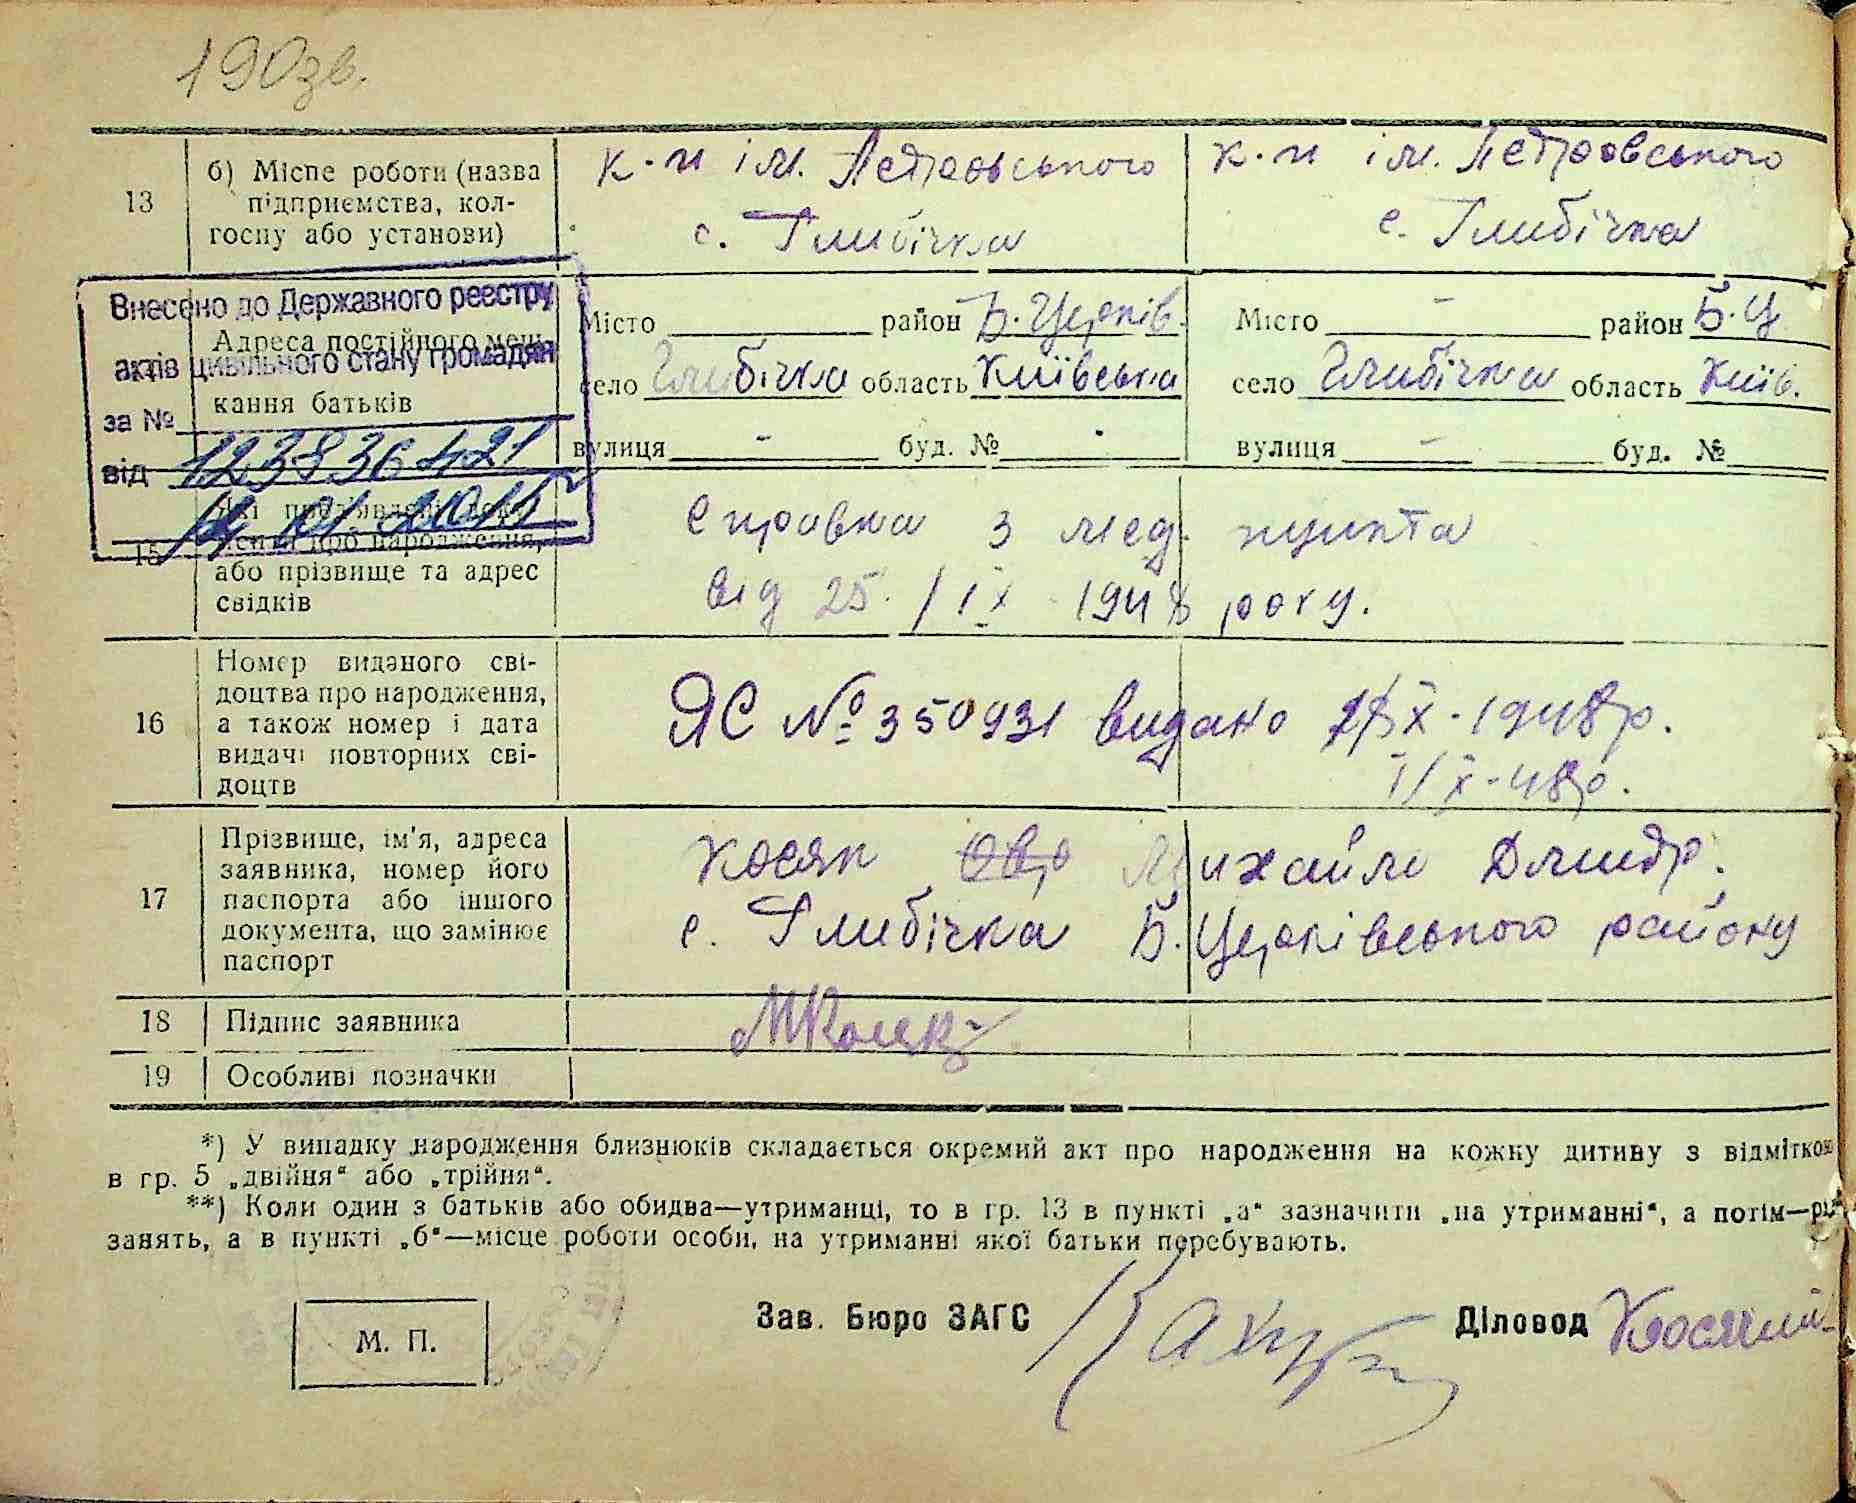 190зв.
13
б) Місце роботи (назва
підприємства, кол-
госпу або установи)
к-п ім. Петровського
с. Глибічка
к-п ім. Петровського
с. Глибічка
Внесено до Державного реєстру
актів цивільного стану громадян
за № 123836421
від 14 01 2015
Адреса постійного меш-
кання батьків
Місто район Б. Церків.
село Глибічка область Київська
вулиця - буд. № -
Місто - район Б. Ц
село Глибічка область Київ.
вулиця - буд. №
15
або прізвище та адрес
свідків
Справка з мед. пункта
від 25. / ІХ - 1948 року.
16
Номер виданого сві-
доцтва про народження,
а також номер і дата
видачі повторних сві-
доцтв
ЯС № 350931 видано Х - 1948 р.
1/Х - 48р.
17
Прізвище, ім'я, адреса
заявника, номер його
паспорта або іншого
документа, що замінює
паспорт
Косяк Михайло Дмитр.
с. Глибічка Б. Церківського району
18
Підпис заявника
19
Особливі позначки
*) У випадку народження близнюків складається окремий акт про народження на кожну дитину з відміткою
в гр. 5 „двійня“ або „трійня“.
**) Коли один з батьків або обидва—утриманці, то в гр. 13 в пункті „а“ зазначити „на утриманні“, а потім—рід
занять, а в пункті „б“—місце роботи особи, на утриманні якої батьки перебувають.
М. П.
Зав. Бюро ЗАГС
Діловод